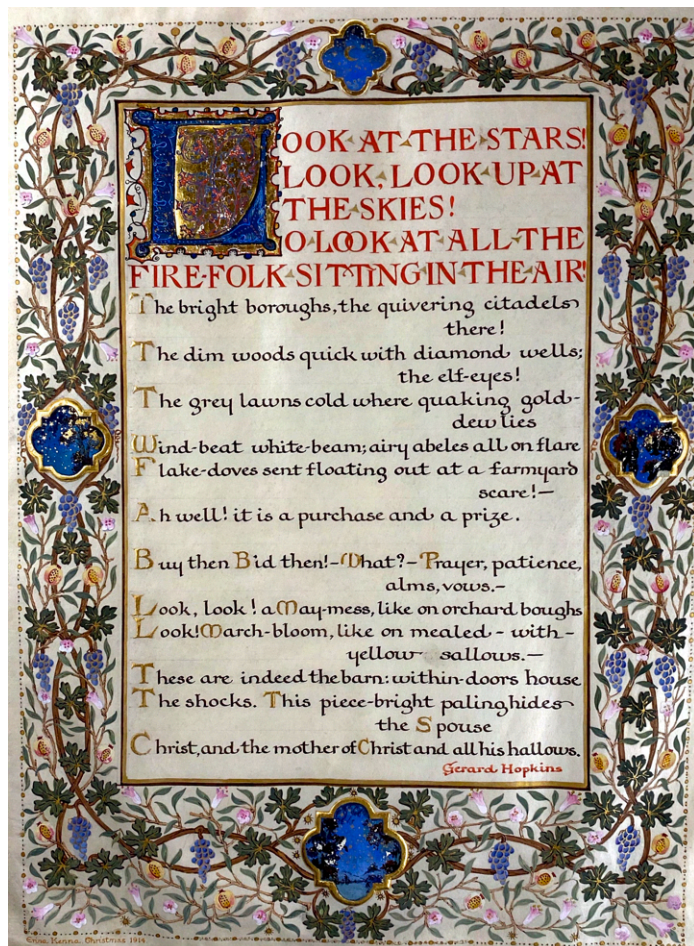 LOOK AT THE STARS!
LOOK, LOOK UP AT
THE SKIES!
O LOOK AT ALL THE
FIRE-FOLK SITTING IN THE AIR!
The bright boroughs, the quivering citadels
there!
The dim woods quick with diamond wells;
the elf-eyes!
The grey lawns cold where quaking gold-
dew lies
Wind-beat white-beam; airy abeles all on flare
Flake-doves sent floating out at a farmyard
scare!—
Ah well! it is a purchase and a prize.
Buy then Bid then!—What?—Prayer, patience,
alms, vows.—
Look, look! a May-mess, like on orchard boughs
Look! March-bloom, like on mealed-with-
yellow sallows.—
These are indeed the barn: within-doors house
The shocks. This piece-bright paling hides
the Spouse
Christ, and the mother of Christ and all his hallows.
Gerard Hopkins
Christmas 1914